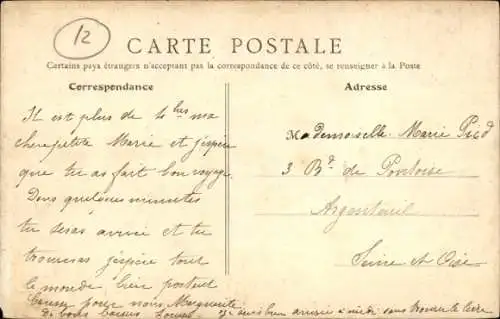 12
CARTE POSTALE
Certains pays étrangers n'acceptant pas la correspondance de ce côté, se renseigner à la Poste
Correspondance
Adresse
Il est plus de 4 hes ma
chere petite Marie et j'espère
que tu as fait bon voyage
Dans quelques minutes
tu seras arrivée et tu
trouveras j'espère tout
le monde bien portant
pour nous Marguerite
De bons baisers
Mademoiselle Marie
3 Bd de Pontoise
Argenteuil
Seine et Oise
bien arrivée à midi sans